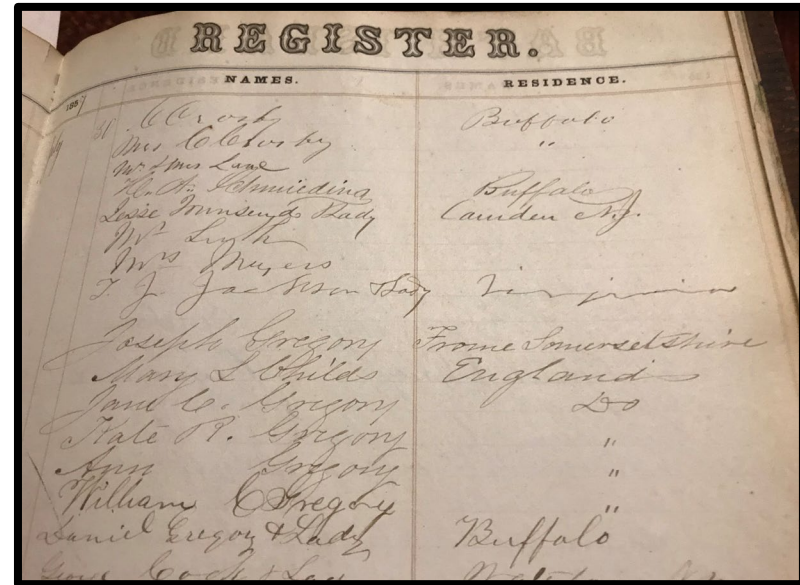 REGISTER.
NAMES. RESIDENCE.
1857
31 C Crosby Buffalo
Mrs C Crosby "
Mr & Mrs Lane
H. A. Schmieding Buffalo
Jesse Townsend & Lady Camden N.J.
Mr
Mrs Myers
T. J. Jackson & Lady Virginia
Joseph Gregory Frome Somersetshire
Mary L Childs England
Jane C. Gregory Do
Kate R. Gregory "
Ann Gregory "
William C Gregory "
Daniel Gregory & Lady Buffalo
George Cook & Lady